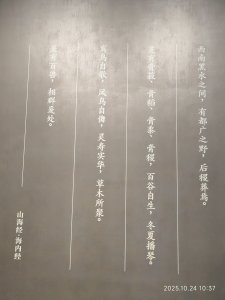 西南黑水之间，有都广之野，后稷葬焉。
爰有膏菽、膏稻、膏黍、膏稷，百谷自生，冬夏播琴。
鸾鸟自歌，凤鸟自儛，灵寿实华，草木所聚。
爰有百兽，相群爰处。
山海经·海内经
2025.10.24 10:37